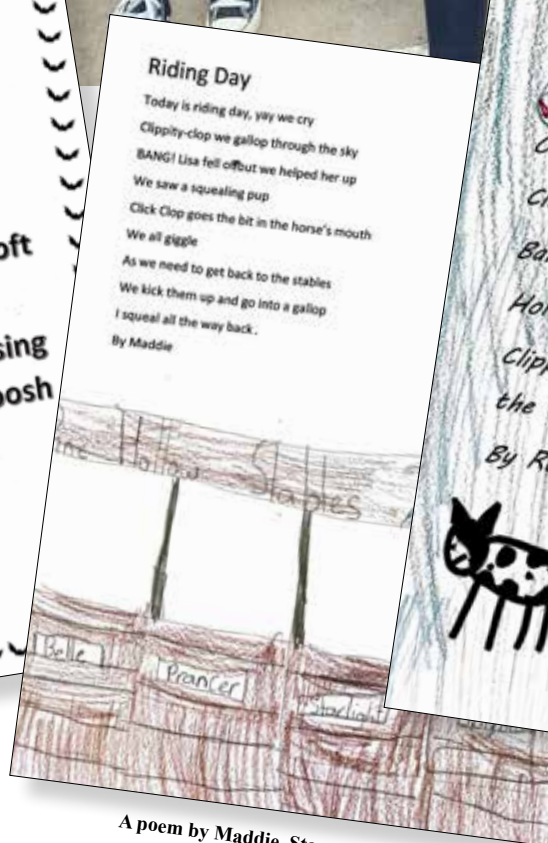 oft
sing
oosh
Riding Day
Today is riding day, yay we cry
Clippity-clop we gallop through the sky
BANG! Lisa fell off but we helped her up
We saw a squealing pup
Click Clop goes the bit in the horse's mouth
We all giggle
As we need to get back to the stables
We kick them up and go into a gallop
I squeal all the way back.
By Maddie
Hollow Stables
Belle
Prancer
Starlight
Ba
Hol
Clip
the
By R
A poem by Maddie, St